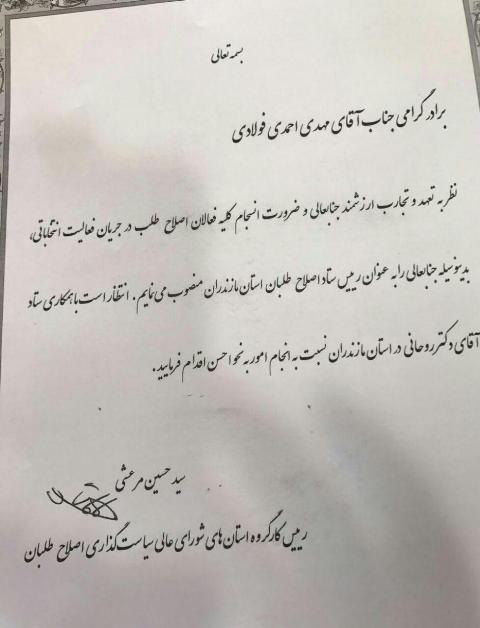 بسمه تعالی
برادر گرامی جناب آقای مهدی احمدی فولادی
نظر به تعهد و تجارب ارزشمند جنابعالی و ضرورت انسجام کلیه فعالان اصلاح طلب در جریان فعالیت انتخاباتی،
بدینوسیله جنابعالی را به عنوان رییس ستاد اصلاح طلبان استان مازندران منصوب می نمایم. انتظار است با همکاری ستاد
آقای دکتر روحانی در استان مازندران نسبت به انجام امور به نحو احسن اقدام فرمایید.
سید حسین مرعشی
رییس کارگروه استان های شورای عالی سیاست گذاری اصلاح طلبان